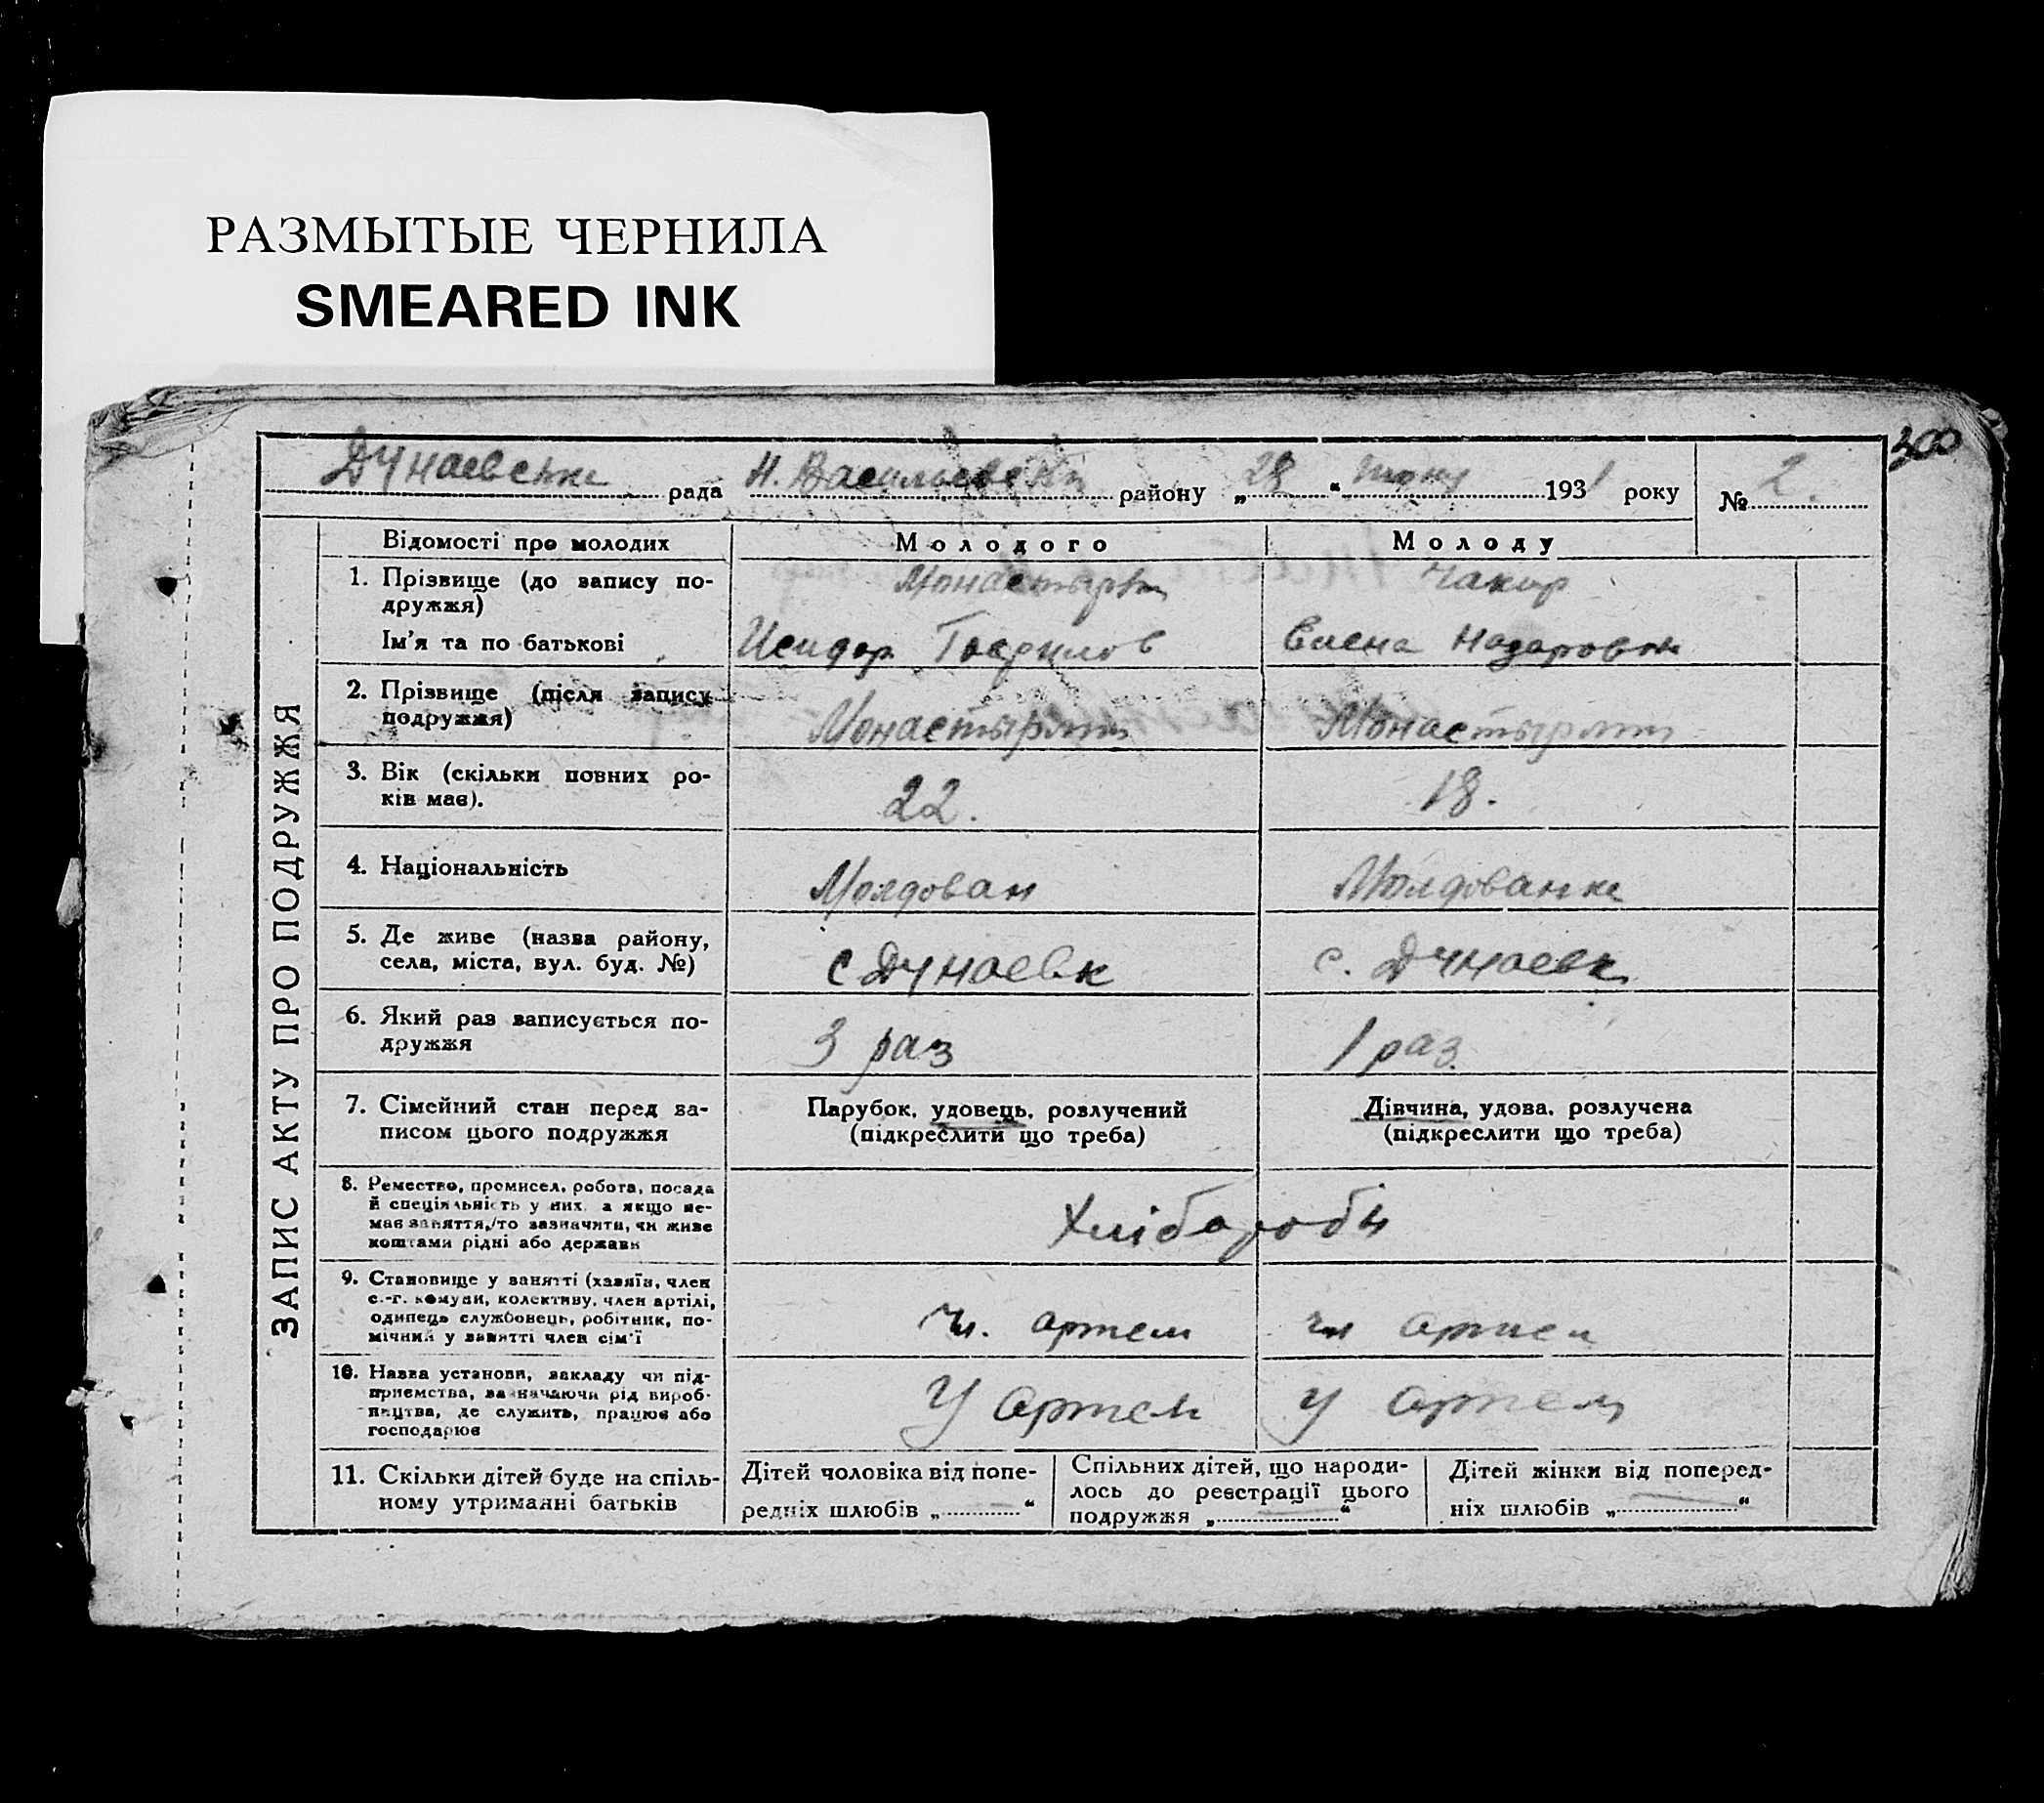 РАЗМЫТЫЕ ЧЕРНИЛА
SMEARED INK
300
рада Н. Васильевськ району „28“ 1931 року № 2.
ЗАПИС АКТУ ПРО ПОДРУЖЖЯ
Відомості про молодих Молодого Молоду
1. Прізвище (до запису по- Чакир
дружжя)
Ім'я та по батькові Исидор Гаврилов Елена Назаровна
2. Прізвище (після запису
подружжя)
3. Вік (скільки повних ро- 22. 18.
ків має).
4. Національність Молдован Молдованка
5. Де живе (назва району,
села, міста, вул. буд. №) с Дунаевк с. Дунаевк
6. Який раз записується по- 3 раз 1 раз.
дружжя
7. Сімейний стан перед за- Парубок, удовець, розлучений Дівчина, удова, розлучена
писом цього подружжя (підкреслити що треба) (підкреслити що треба)
8. Ремество, промисел, робота, посада
й спеціяльність у них, а якщо не-
має заняття, то зазначити, чи живе Хліборобы
коштами рідні або держави
9. Становище у занятті (хазяїн, член
с.-г. комуни, колективу, член артілі,
одинець службовець, робітник, по- чл. артели чл артели
мічний у занятті член сім'ї
10. Назва установи, закладу чи під-
приємства, зазначаючи рід вироб- У артели У артели
ництва, де служить, працює або
господарює
11. Скільки дітей буде на спіль- Дітей чоловіка від попе- Спільних дітей, що народи- Дітей жінки від поперед-
ному утриманні батьків редніх шлюбів „—“ лось до реєстрації цього ніх шлюбів „—“
подружжя „—“